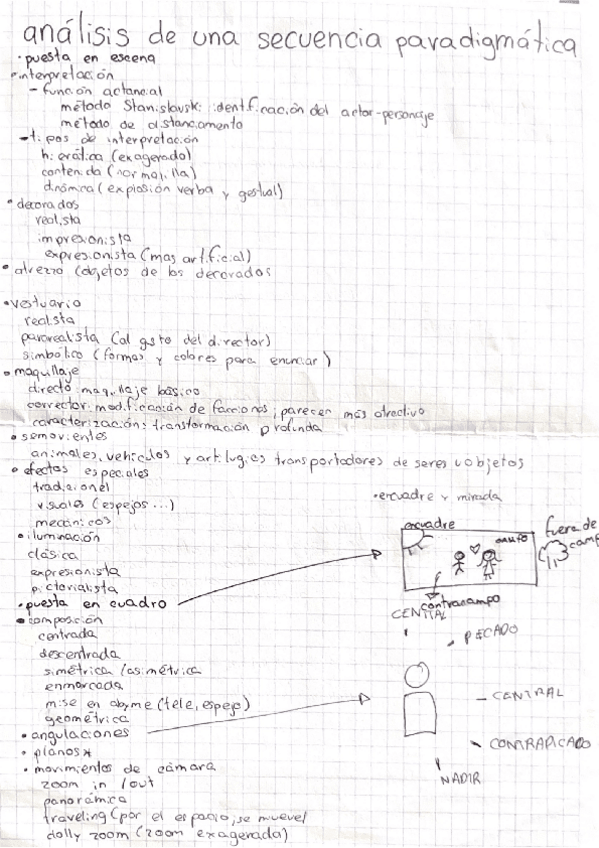 análisis de una secuencia paradigmática
• puesta en escena
• interpretación
– función actancial
método Stanislavski: identificación del actor-personaje
método de distanciamento
– tipos de interpretación
hierática (exagerado)
contenida (normalilla)
dinámica (explosión verba y gestual)
• decorados
realista
impresionista
expresionista (mas artificial)
• atrezzo (objetos de los decorados
• vestuario
realista
pararealista (al gsto del director)
simbolico (formas y colores para enunciar)
• maquillaje
directo: maquillaje básico
corrector: modificación de facciones, parecer más atractivo
caracterización: transformación profunda
• semovientes
animales, vehículos y artilugios transportadores de seres u objetos
• efectos especiales
tradicional
visuales (espejos ...)
mecánicos
• iluminación
clásica
expresionista
pictorialista
• puesta en cuadro
• composición
centrada
descentrada
simétrica / asimétrica
enmarcada
mise en abyme (tele, espejo)
geométrica
• angulaciones
• planos *
• movimientos de cámara
zoom in / out
panorámica
traveling (por el espacio; se mueve)
dolly zoom (zoom exagerada)
• encuadre y mirada
encuadre
campo
fuera de campo
contracampo
CENITAL
PICADO
CENTRAL
CONTRAPICADO
NADIR